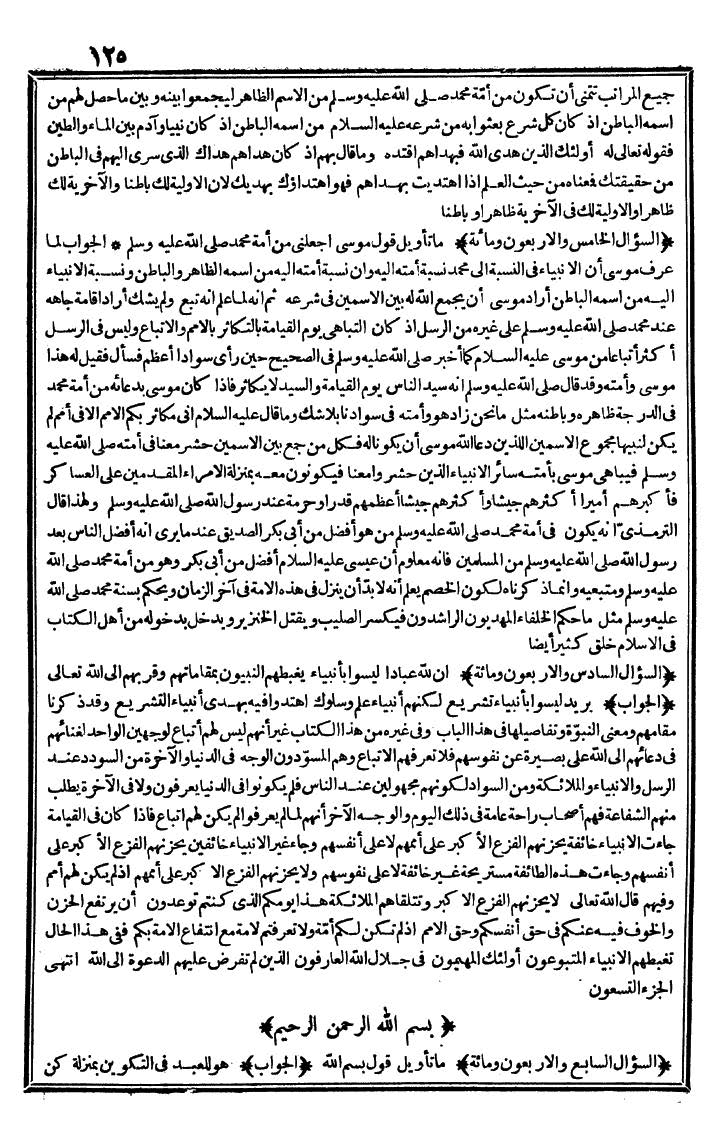 ١٢٥
جميع المراتب تتمنى أن تكون من أمّة محمد صلى الله عليه وسلم من الاسم الظاهر ليجمعوا بينه وبين ما حصل لهم من
اسمه الباطن اذ كان كل شرع بعثوا به من شرعه عليه السلام من اسمه الباطن اذ كان نبيا وآدم بين الماء والطين
فقوله تعالى له أولئك الذين هدى الله فبهداهم اقتده وما قال بهم اذ كان هداهم هداك الذى سرى اليهم فى الباطن
من حقيقتك فعناه من حيث العلم اذا اهتديت بهداهم فهو اهتداؤك بهديك لان الاولية لك باطنا والآخرية لك
ظاهرا والاولية لك فى الآخرية ظاهرا وباطنا
﴿السؤال الخامس والاربعون ومائة﴾ ما تأويل قول موسى اجعلنى من أمة محمد صلى الله عليه وسلم * الجواب لما
عرف موسى أن الانبياء فى النسبة الى محمد نسبة أمته اليه وان نسبة أمته اليه من اسمه الظاهر والباطن ونسبة الانبياء
اليه من اسمه الباطن أراد موسى أن يجمع الله له بين الاسمين فى شرعه ثم انه لما علم انه تبع ولم يشك أراد اقامة جاهه
عند محمد صلى الله عليه وسلم على غيره من الرسل اذ كان التباهى يوم القيامة بالتكاثر بالامم والاتباع وليس فى الرسل
أكثر أتباعا من موسى عليه السلام كما أخبر صلى الله عليه وسلم فى الصحيح حين رأى سوادا أعظم فسأل فقيل له هذا
موسى وأمته وقد قال صلى الله عليه وسلم انه سيد الناس يوم القيامة والسيد لا يكاثر فاذا كان موسى بدعائه من أمة محمد
فى الدرجة ظاهره وباطنه مثل ما نحن زاد هو وأمته فى سوادنا بلا شك وما قال عليه السلام انى مكاثر بكم الامم الا فى أمم لم
يكن لنبيها مجموع الاسمين اللذين دعا الله موسى أن يكونا له فكل من جمع بين الاسمين حشر معنا فى أمته صلى الله عليه
وسلم فيباهى موسى بأمته سائر الانبياء الذين حشروا معنا فيكونون معه بمنزلة الامراء المقدمين على العساكر
فأكبرهم أميرا أكثرهم جيشا وأكثرهم جيشا أعظمهم قدرا وحرمة عند رسول الله صلى الله عليه وسلم ولهذا قال
الترمذىّ انه يكون فى أمة محمد صلى الله عليه وسلم من هو أفضل من أبى بكر الصديق عند ما يرى انه أفضل الناس بعد
رسول الله صلى الله عليه وسلم من المسلمين فانه معلوم أن عيسى عليه السلام أفضل من أبى بكر وهو من أمة محمد صلى الله
عليه وسلم ومتبعيه وانماذ كرناه لكون الخصم يعلم أنه لا بدّ أن ينزل فى هذه الامة فى آخر الزمان ويحكم بسنة محمد صلى الله
عليه وسلم مثل ما حكم الخلفاء المهديون الراشدون فيكسر الصليب ويقتل الخنزير ويدخل بدخوله من أهل الكتاب
فى الاسلام خلق كثير أيضا
﴿السؤال السادس والاربعون ومائة﴾ ان لله عبادا ليسوا بأنبياء يغبطهم النبيون بمقاماتهم وقربهم الى الله تعالى
﴿الجواب﴾ يريد ليسوا بأنبياء تشريع لكنهم أنبياء علم وسلوك اهتدوا فيه بهدى أنبياء التشريع وقد ذكرنا
مقامهم ومعنى النبوّة وتفاصيلها فى هذا الباب وفى غيره من هذا الكتاب غير أنهم ليس لهم أتباع لوجهين الواحد لغنائهم
فى دعائهم الى الله على بصيرة عن نفوسهم فلا تعرفهم الاتباع وهم المسوّدون الوجه فى الدنيا والآخرة من السودد عند
الرسل والانبياء والملائكة ومن السواد لكونهم مجهولين عند الناس فلم يكونوا فى الدنيا يعرفون ولا فى الآخرة يطلب
منهم الشفاعة فهم أصحاب راحة عامة فى ذلك اليوم والوجه الآخر أنهم لما لم يعرفوا لم يكن لهم اتباع فاذا كان فى القيامة
جاءت الانبياء خائفة يحزنهم الفزع الأكبر على أممهم لا على أنفسهم وجاء غير الانبياء خائفين يحزنهم الفزع الأكبر على
أنفسهم وجاءت هذه الطائفة مستريحة غير خائفة لا على نفوسهم ولا يحزنهم الفزع الاكبر على أممهم اذ لم يكن لهم أمم
وفيهم قال الله تعالى لا يحزنهم الفزع الاكبر وتتلقاهم الملائكة هذا يومكم الذى كنتم توعدون أن يرتفع الحزن
والخوف فيه عنكم فى حق أنفسكم وحق الامم اذ لم تكن لكم أمّة ولا تعرفتم لامة مع انتفاع الامة بكم ففى هذا الحال
تغبطهم الانبياء المتبوعون أولئك المهيمون فى جلال الله العارفون الذين لم تفرض عليهم الدعوة الى الله انتهى
الجزء التسعون
﴿بسم الله الرحمن الرحيم﴾
﴿السؤال السابع والاربعون ومائة﴾ ما تأويل قول بسم الله ﴿الجواب﴾ هو للعبد فى التكوين بمنزلة كن